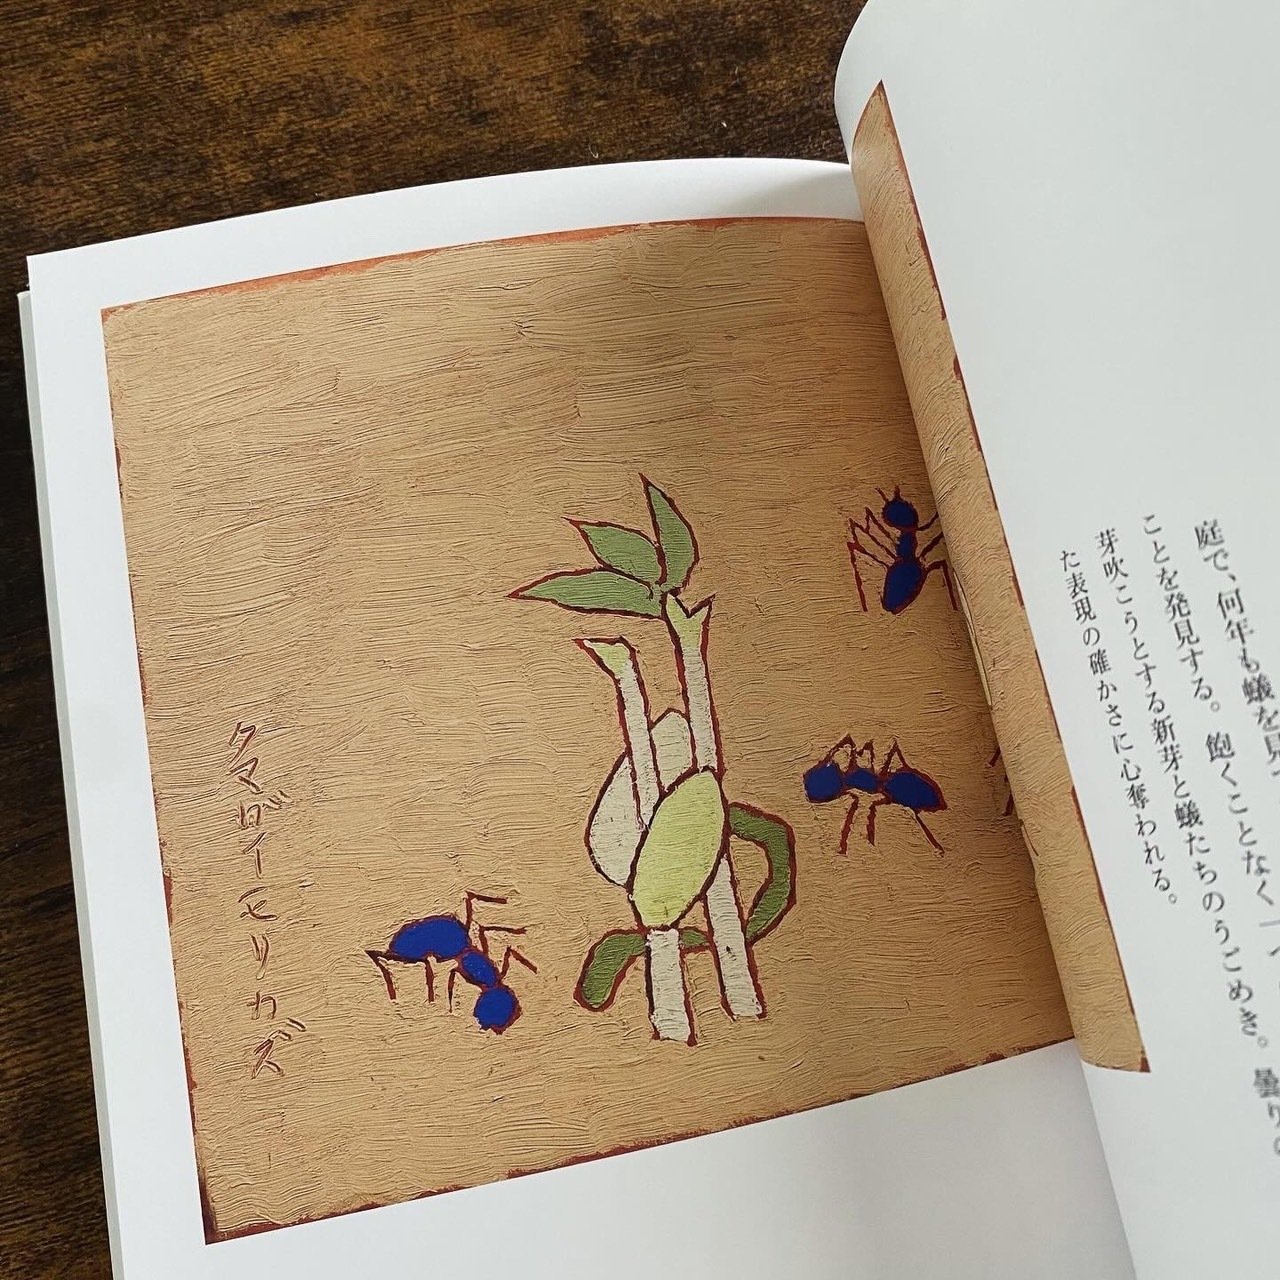 庭で、何年も蟻を見
ことを発見する。飽くことなく一
芽吹こうとする新芽と蟻たちのうごめき。曇りの
た表現の確かさに心奪われる。
クマガイモリカズ